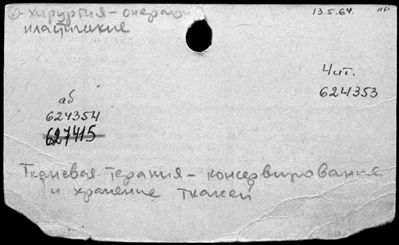 хирургия - операции 13.5.64. НР
пластические
Чит.
624353
аб
624354
627415
Тканевая терапия - консервирование
и хранение тканей